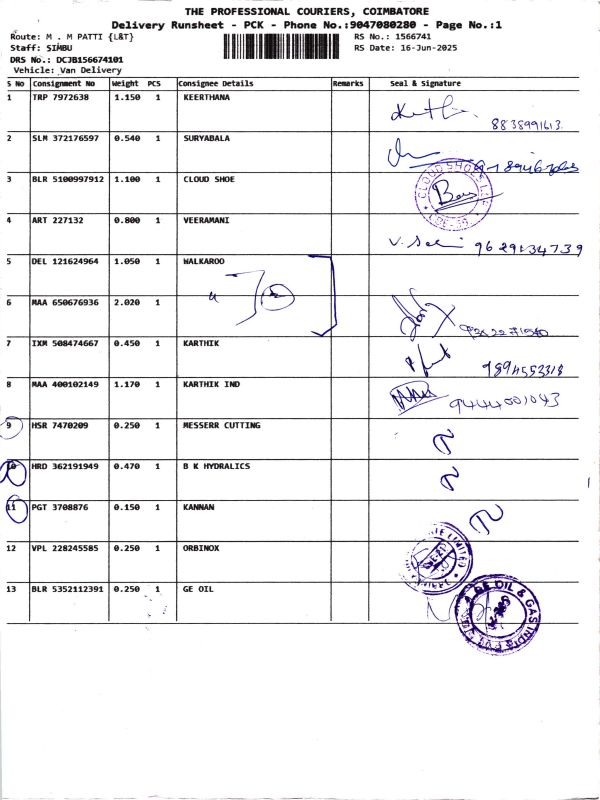 THE PROFESSIONAL COURIERS, COIMBATORE
Delivery Runsheet - PCK - Phone No.:9047080280 - Page No.:1
Route: M . M PATTI {L&T}
RS No.: 1566741
Staff: SIMBU
RS Date: 16-Jun-2025
DRS No.: DCJB156674101
Vehicle: Van Delivery
S No Consignment No Weight PCS Consignee Details Remarks Seal & Signature
1 TRP 7972638 1.150 1 KEERTHANA
8838991613
2 SLM 372176597 0.540 1 SURYABALA
3 BLR 5100997912 1.100 1 CLOUD SHOE
CLOUD SHOE
4 ART 227132 0.800 1 VEERAMANI
9629134739
5 DEL 121624964 1.050 1 WALKAROO
6 MAA 650676936 2.020 1
7 IXM 508474667 0.450 1 KARTHIK
9894552318
8 MAA 400102149 1.170 1 KARTHIK IND
9444001043
9 HSR 7470209 0.250 1 MESSERR CUTTING
10 HRD 362191949 0.470 1 B K HYDRALICS
11 PGT 3708876 0.150 1 KANNAN
12 VPL 228245585 0.250 1 ORBINOX
13 BLR 5352112391 0.250 1 GE OIL
GE OIL & GAS INDIA PVT